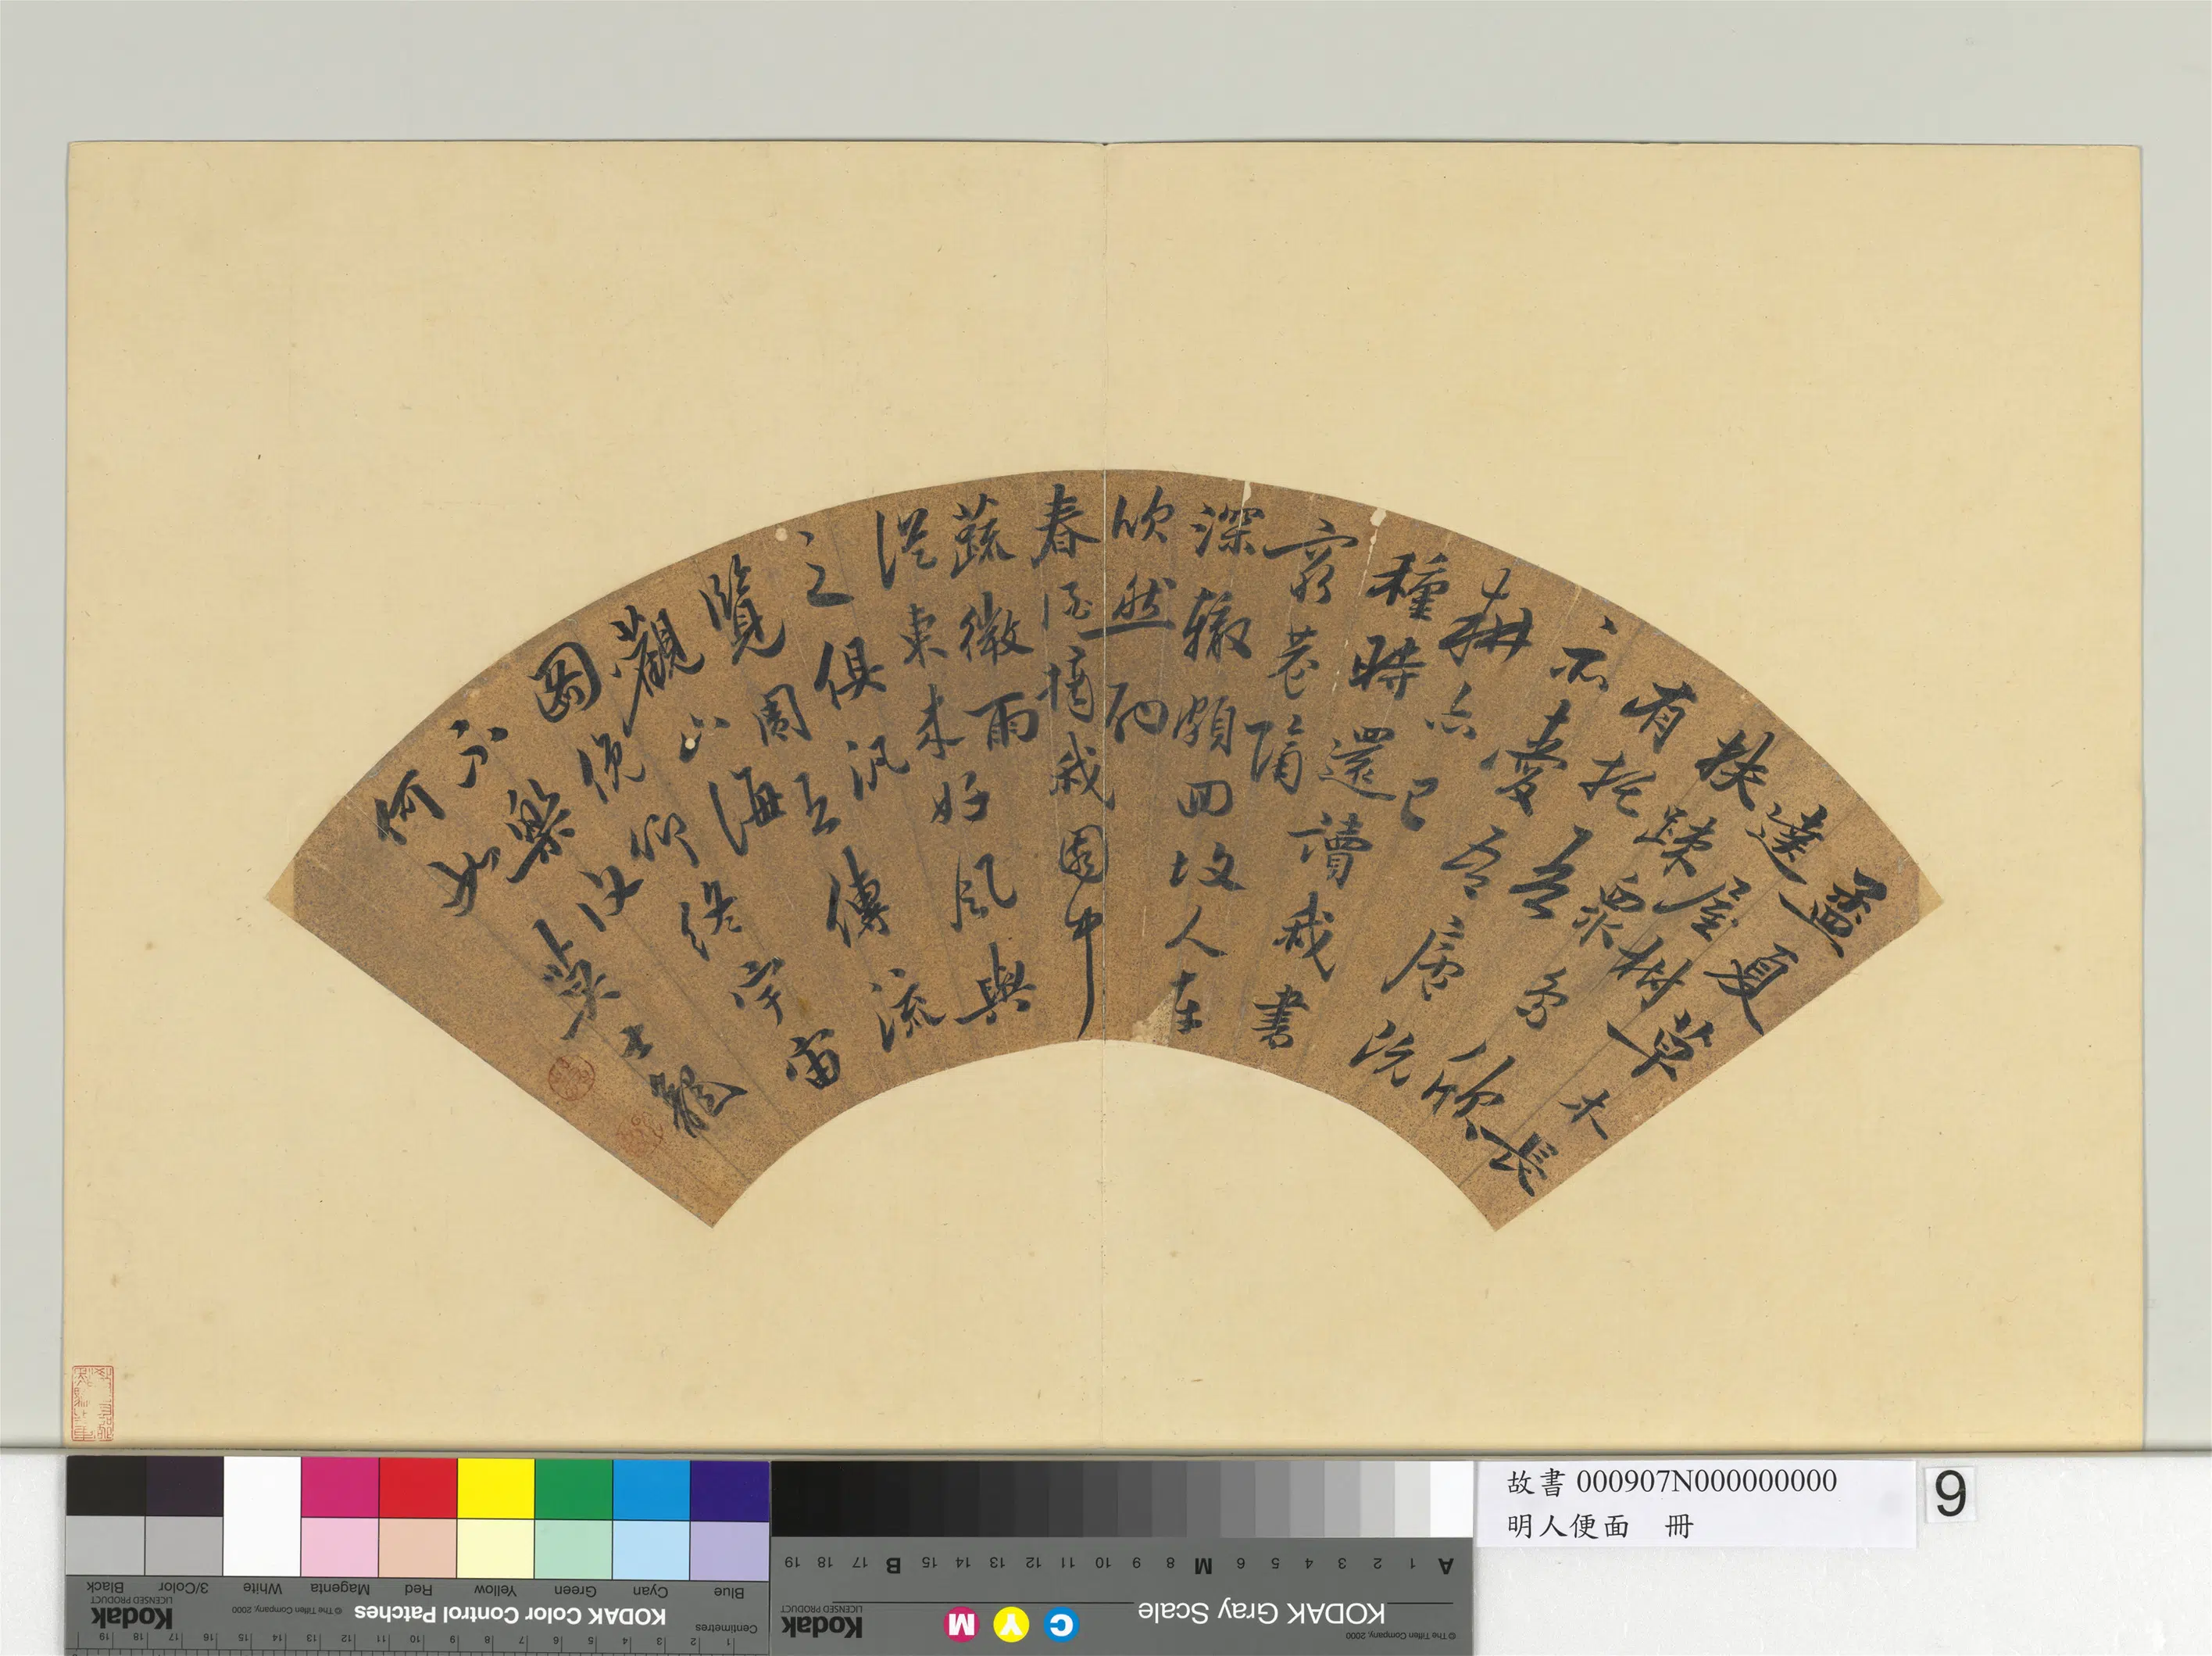 孟夏草木長
遶屋樹
扶疎眾鳥欣
有托吾
亦愛吾廬既
耕亦已
種時還讀我書
窮巷隔
深轍頗回故人車
欣然酌
春酒摘我園中
蔬微雨
從東來好風與
之俱汎
覽周王傳流
觀山海
圖俛仰終宇宙
不樂復
何如
故書 000907N000000000
明人便面 冊
9
Black 3/Color White Magenta Red Yellow Green Cyan Blue
Kodak LICENSED PRODUCT © The Tiffen Company, 2000 KODAK Color Control Patches
Centimetres
1 2 3 4 5 6 7 8 9 10 11 12 13 14 15 16 17 18 19
A 1 2 3 4 5 6 M 8 9 10 11 12 13 14 15 B 17 18 19
Kodak LICENSED PRODUCT C Y M KODAK Gray Scale © The Tiffen Company, 2000